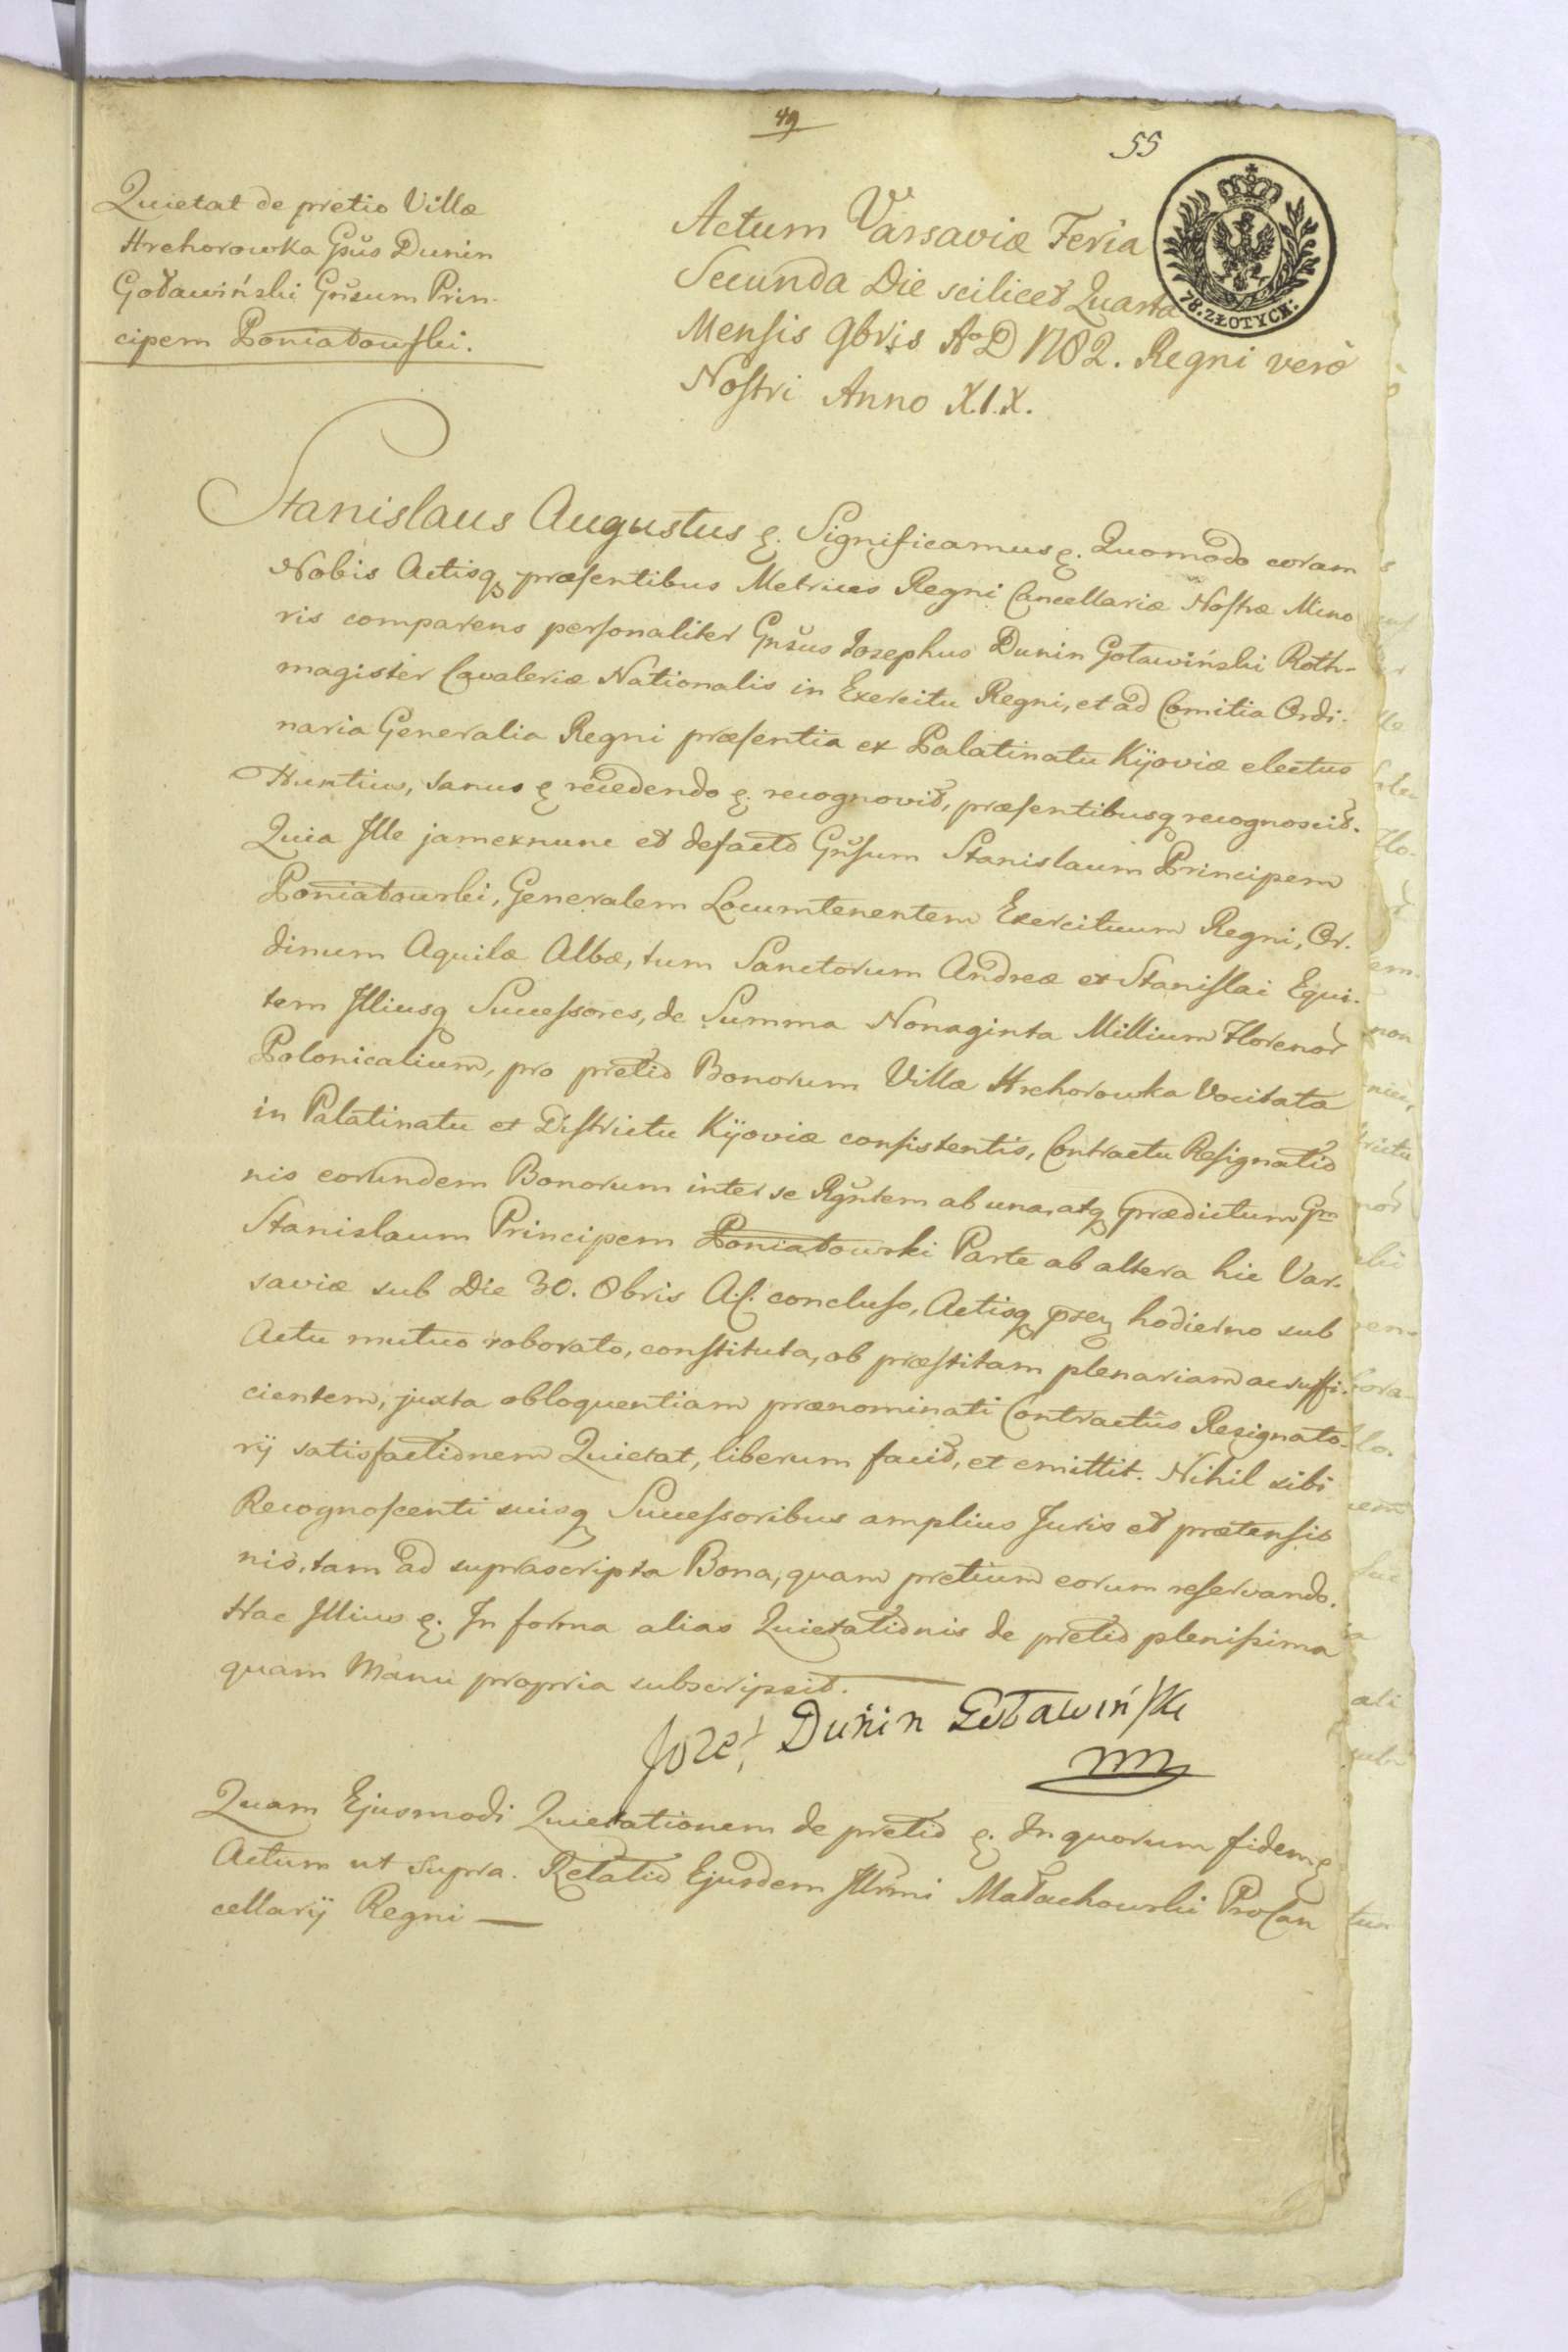 49
55
Quietat de pretio Villæ
Hrehorowka Gsus Dunin
Goławiński Gnsum Prin-
cipem Poniatowski.
Actum Varsaviæ Feria
Secunda Die scilicet Quarta
Mensis 9bris A⁰ D 1782. Regni vero
Nostri Anno X.I.X.
78. ZŁOTYCH:
Stanislaus Augustus &. Significamus &. Quomodo coram
Nobis Actisq præsentibus Metrices Regni Cancellariæ Nostræ Mino
ris comparens personaliter Gnsus Josephus Dunin Goławiński Roth-
magister Cavaleriæ Nationalis in Exercitu Regni, et ad Comitia Ordi-
naria Generalia Regni præsentia ex Palatinatu Kijoviæ electus
Nuntius, sanus & recedendo &. recognovit, præsentibusq recognoscit.
Quia Ille jamexnunc et defacto Gnsum Stanislaum Principem
Poniatowski, Generalem Locumtenentem Exercituum Regni, Or-
dinum Aquilæ Albæ, tum Sanctorum Andreæ et Stanislai Equi-
tem Illiusq Successores, de Summa Nonaginta Millium Florenor
Polonicalium, pro pretio Bonorum Villæ Hrehorowka Vocitatæ
in Palatinatu et Districtu Kijoviæ consistentis, Contractu Resignatio
nis eorundem Bonorum inter se Rgntem ab una, atq prædictum Gm
Stanislaum Principem Poniatowski Parte ab altera hic Var-
saviæ sub Die 30. 8bris A.C. concluso, Actisq prsen hodierno sub
Actu mutuo roborato, constituta, ob præstitam plenariam ac suffi-
cientem, juxta obloquentiam prænominati Contractus Resignato-
rij satisfactionem Quietat, liberum facit, et emittit. Nihil sibi
Recognoscenti suisq Successoribus amplius Juris et prætensio
nis, tam ad suprascripta Bona, quam pretium eorum reservando.
Hac Illius &. In forma alias Quietationis de pretio plenissima
quam Manu propria subscripsit.
Jozef Dunin Goławiński
mm
Quam Ejusmodi Quietationem de pretio &. In quorum fidem &
Actum ut supra. Relatio Ejusdem Illrmi Małachowski ProCan
cellarij Regni